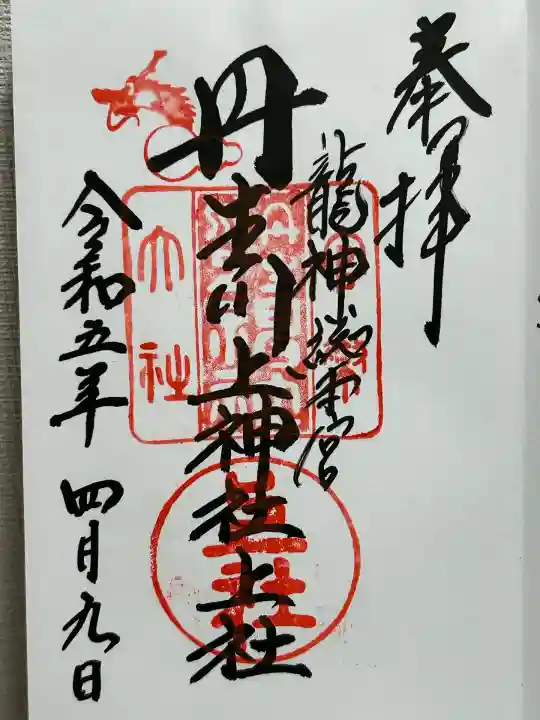 奉拝
龍神総本宮
丹生川上神社上社
令和五年 四月九日
大社
上社